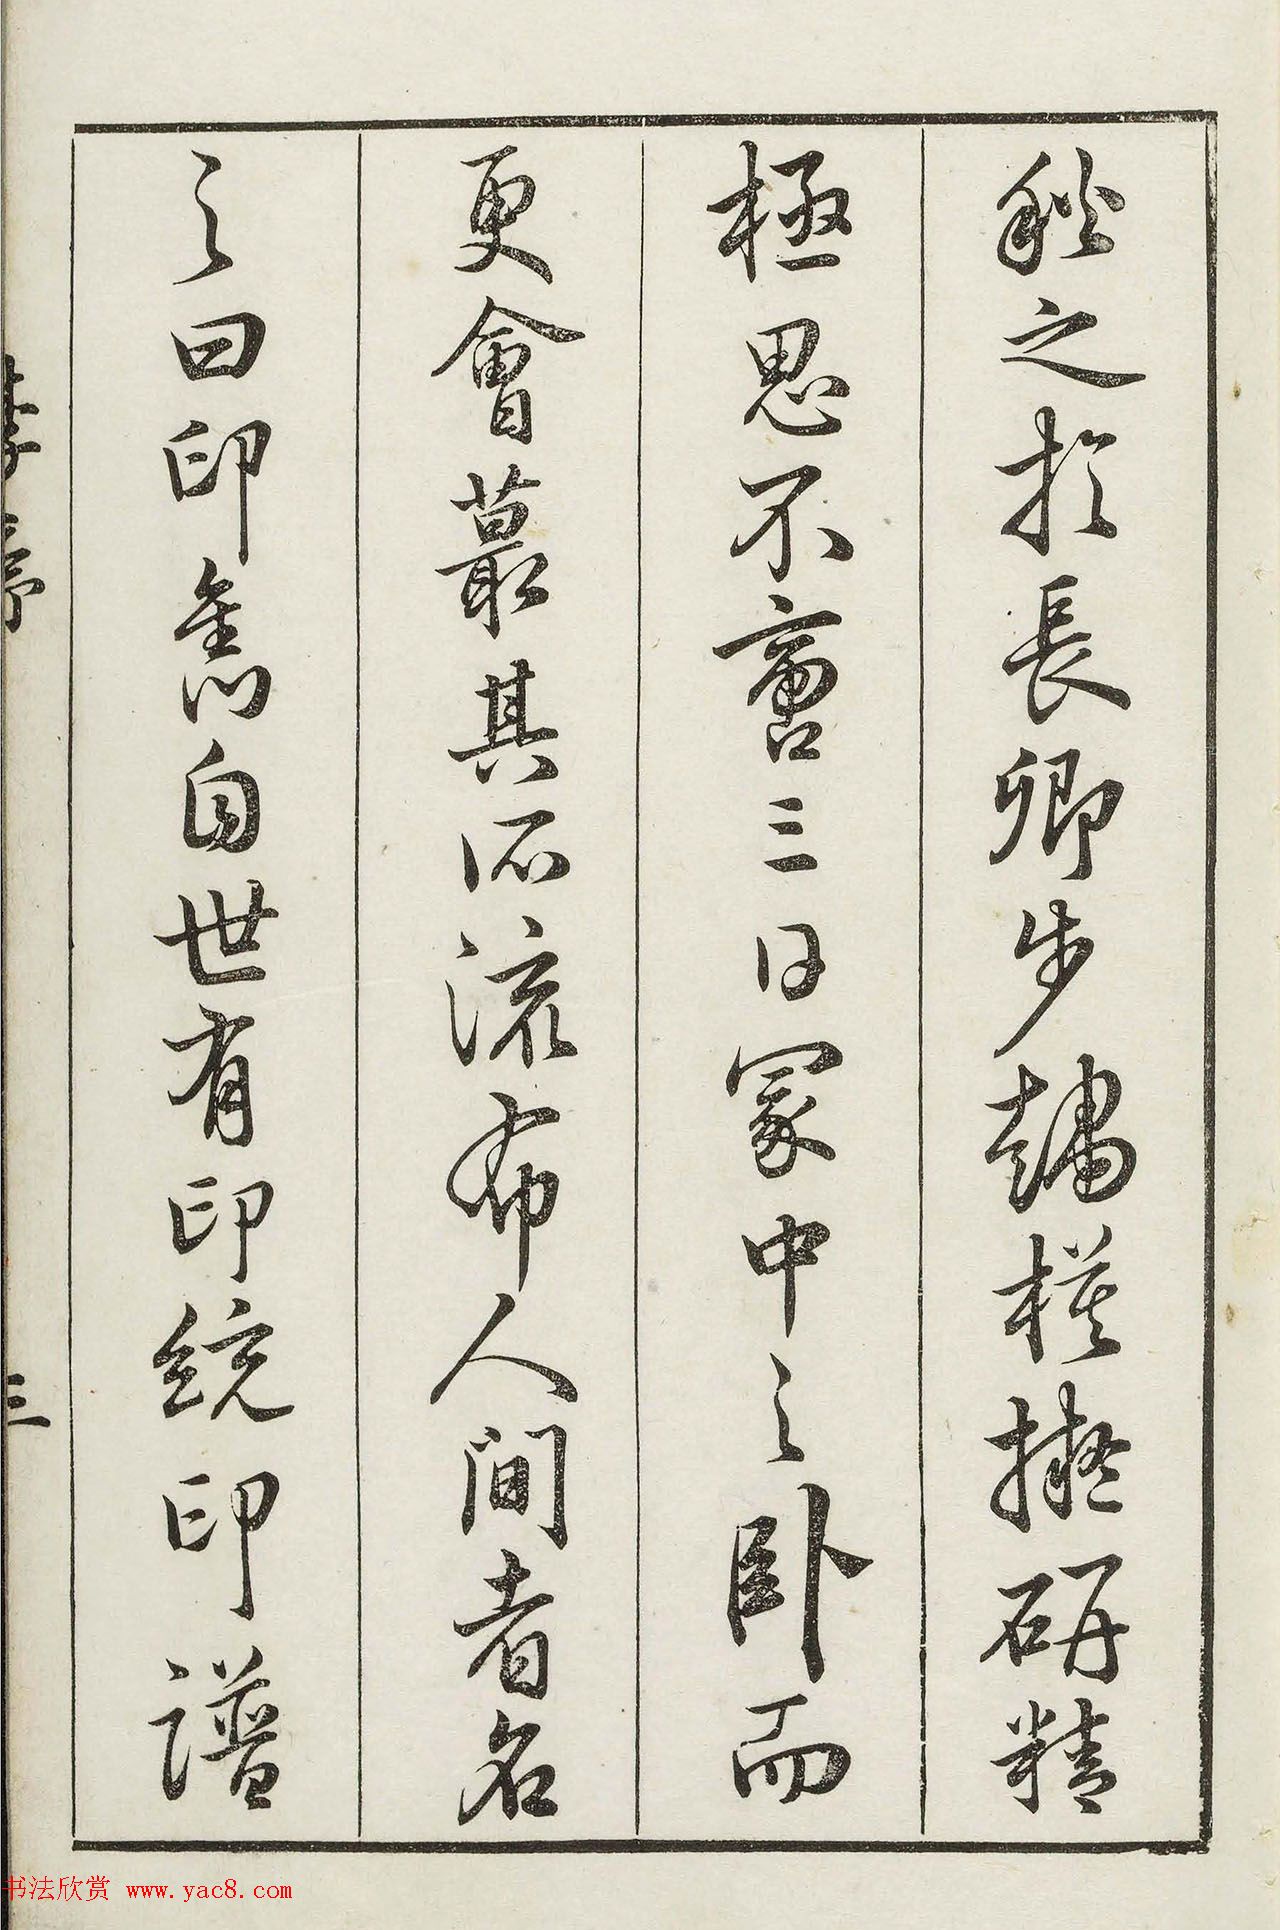 之於長卿步趨模擬研精
極思不啻三日冢中之臥而
更會蕞其所流布人間者名
之曰印雋自世有印統印譜
李序 三
书法欣赏 www.yac8.com